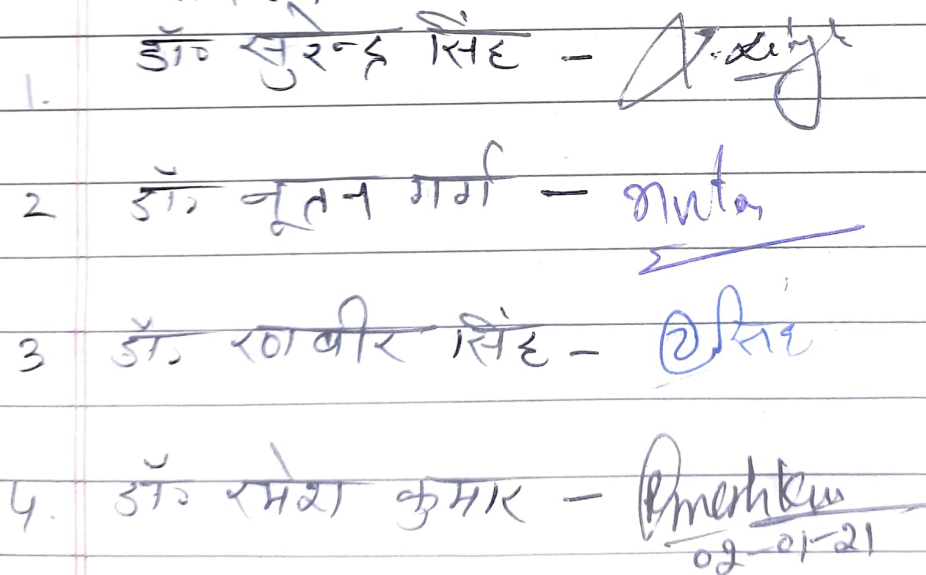 1. डॉ॰ सुरेन्द्र सिंह -
2 डॉ॰ नूतन गर्ग - nutan
3 डॉ॰ रणबीर सिंह - सिंह
4. डॉ॰ रमेश कुमार -
02-01-21